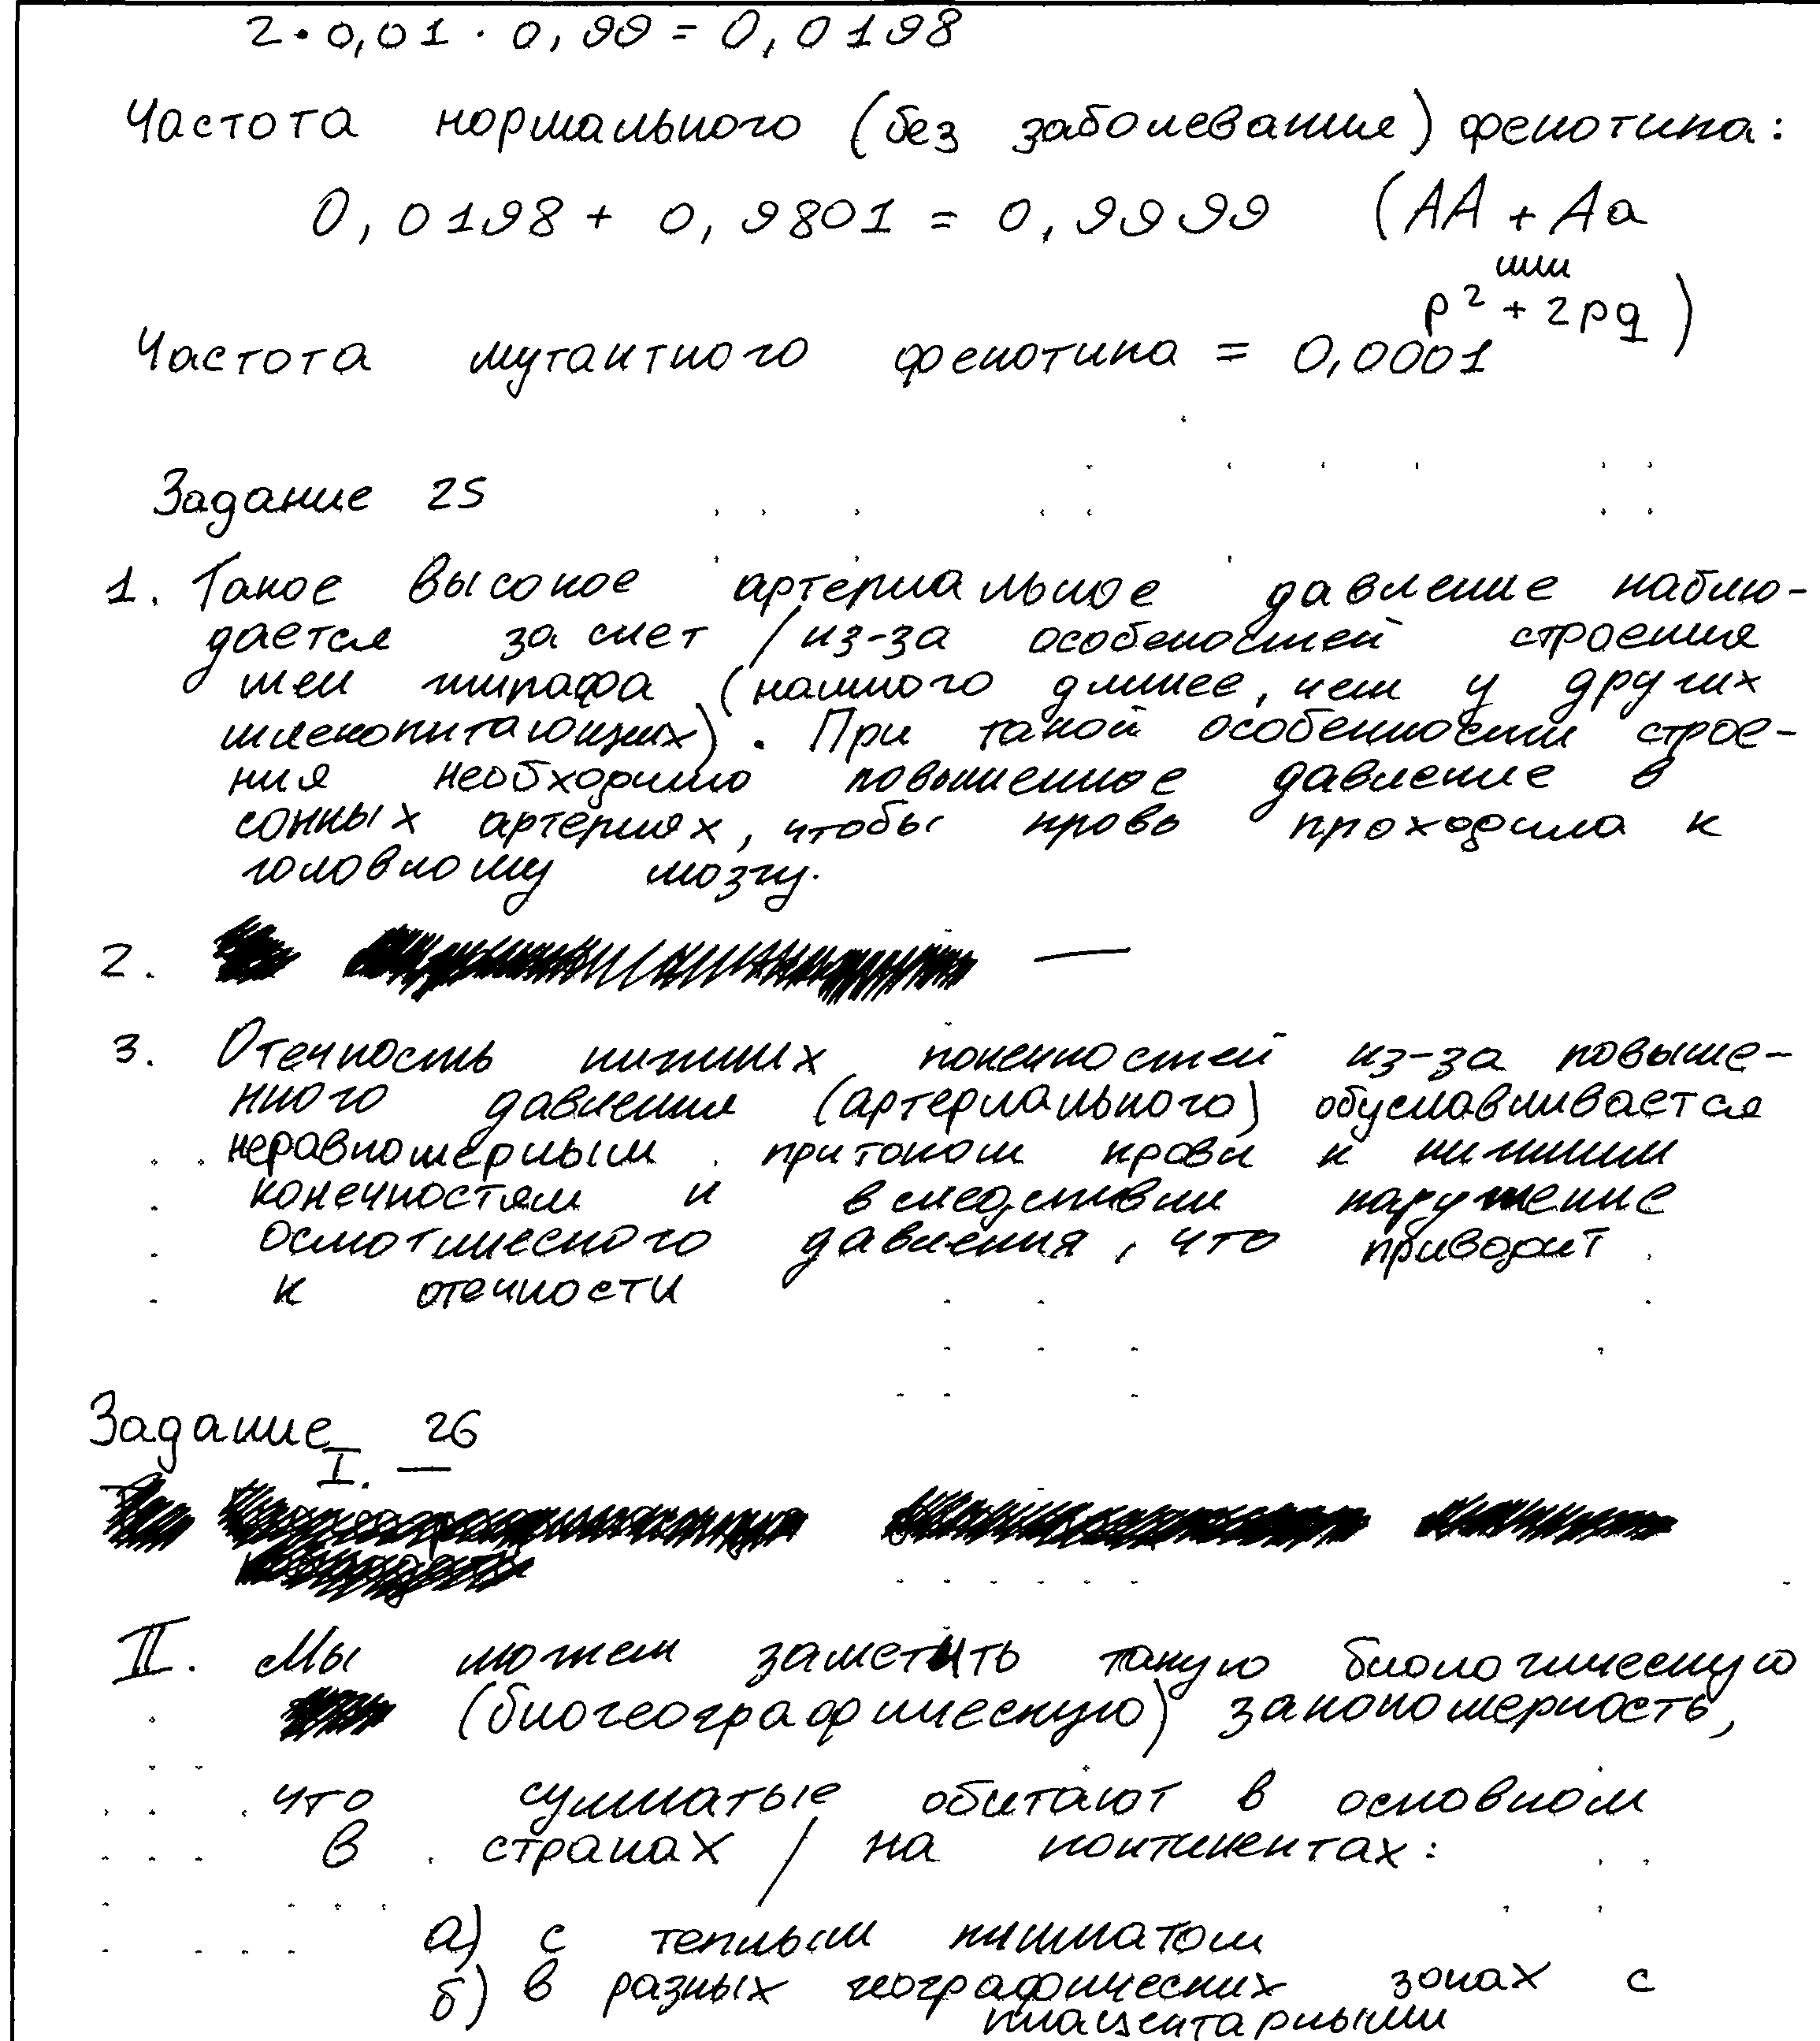 2·0,01·0,99 = 0,0198
Частота нормального (без заболевания) фенотипа:
0,0198 + 0,9801 = 0,9999 (AA + Aa
или
p² + 2pq)
Частота мутантного фенотипа = 0,0001
Задание 25
1. Такое высокое артериальное давление наблю-
дается за счет / из-за особеностей строения
шеи жирафа (намного длинее, чем у других
млекопитающих). При такой особенности строе-
ния необходимо повышенное давление в
сонных артериях, чтобы кровь проходила к
головному мозгу.
2. —
3. Отечность нижних конечностей из-за повыше-
нного давления (артериального) обуславливается
неравномерным притоком крови к нижним
конечностям и вследствии нарушение
осмотического давления, что приводит
к отечности
Задание 26
I. —
II. Мы можем заметить такую биологическую
(биогеографическую) закономерность,
что сумчатые обитают в основном
в странах / на континентах:
а) с теплым климатом
б) в разных географических зонах с
плацентарными